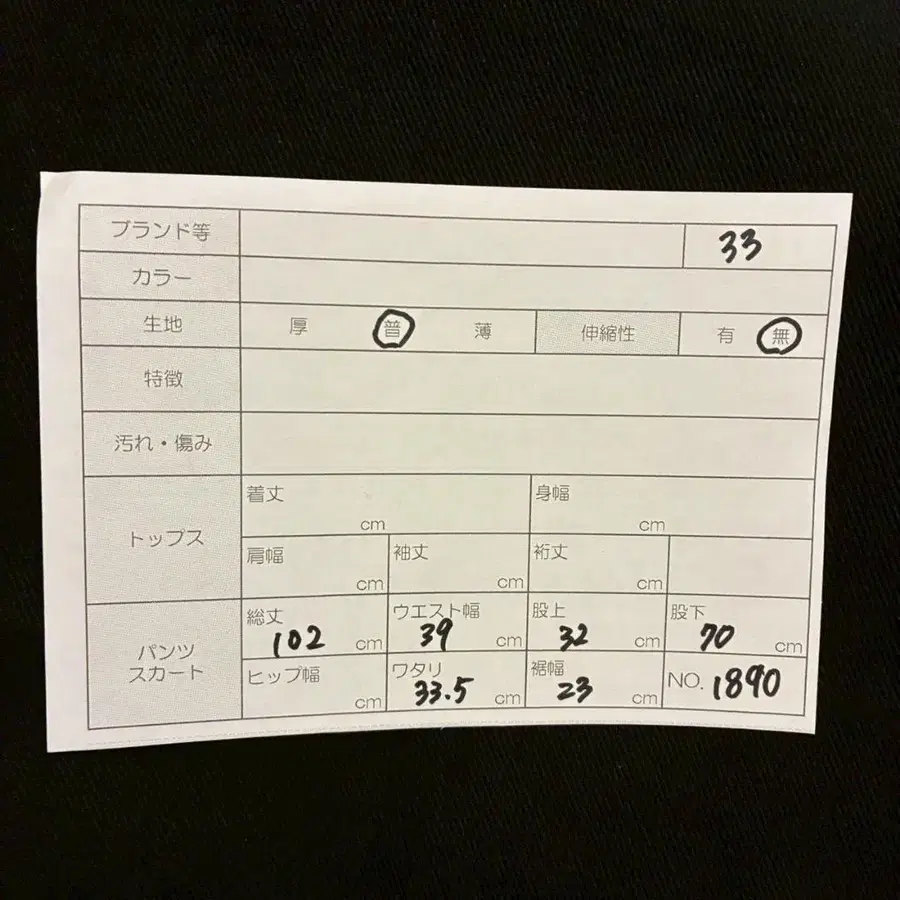 ブランド等 33
カラー
生地 厚 普 薄 伸縮性 有 無
特徴
汚れ・傷み
トップス
着丈 cm 身幅 cm
肩幅 cm 袖丈 cm 裄丈 cm
パンツ
スカート
総丈 102 cm ウエスト幅 39 cm 股上 32 cm 股下 70 cm
ヒップ幅 cm ワタリ 33.5 cm 裾幅 23 cm NO. 1890